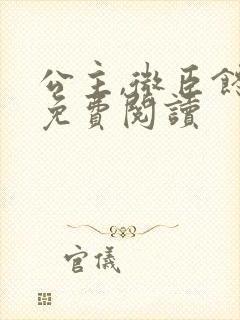 公主,微臣饒
免費閱讀
官儀